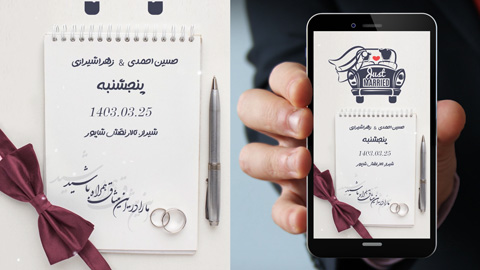 حسین احمدی & زهرا شیرازی
پنجشنبه
1403.03.25
شیراز تالار نقش شاپور
ما را در این شاق همراه باشید
Just
MARRIED
حسین احمدی & زهرا شیرازی
پنجشنبه
1403.03.25
شیراز تالار نقش شاپور